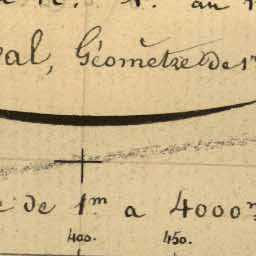 au
al, Géomètre de 1
e de 1m a 4000m
400. 450.